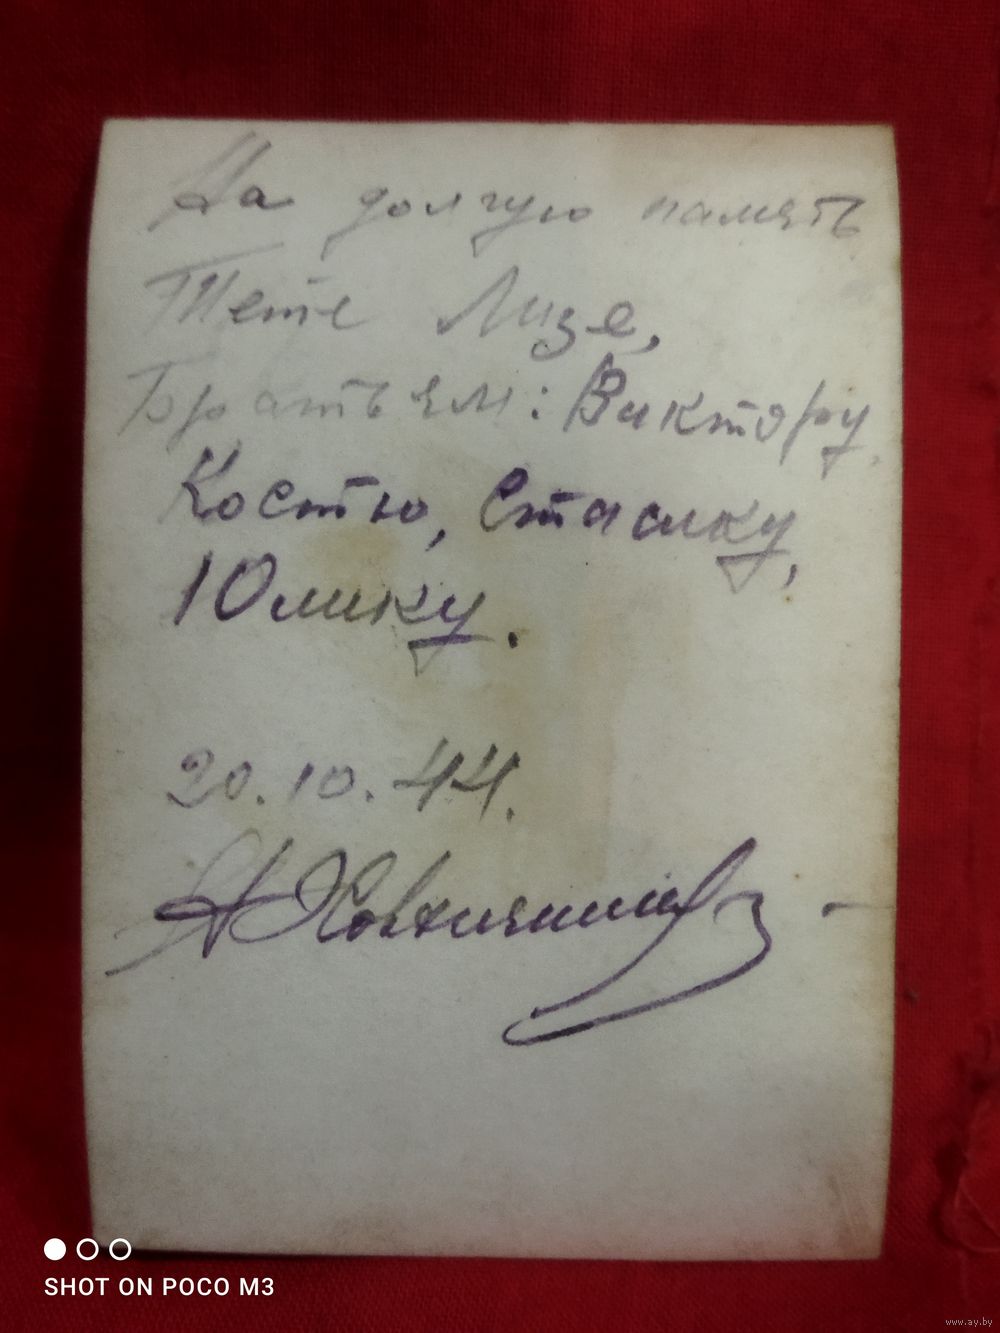 На долгую память
Тете Лизе,
Братьям: Виктору,
Костю, Стасику,
Юлику.
20.10.44.
SHOT ON POCO M3
www.ay.by